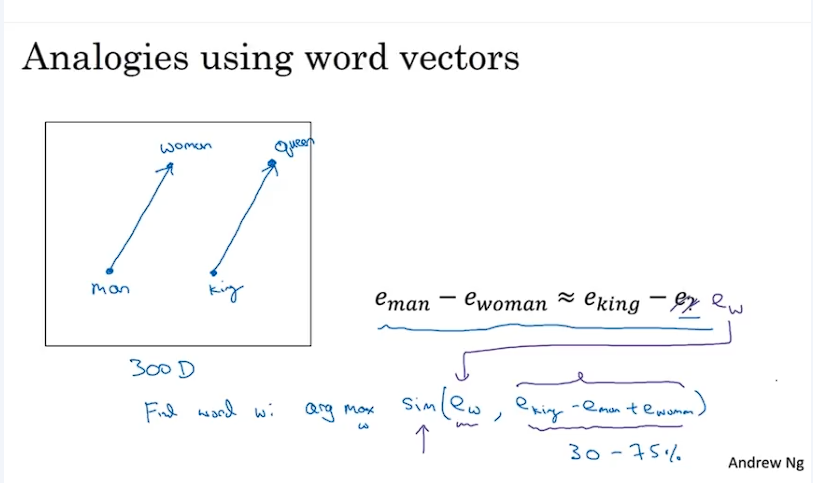 Analogies using word vectors
woman queen
man king
e_man − e_woman ≈ e_king − e_? e_w
300D
Find word w: arg max_w sim(e_w, e_king − e_man + e_woman)
30 - 75%
Andrew Ng